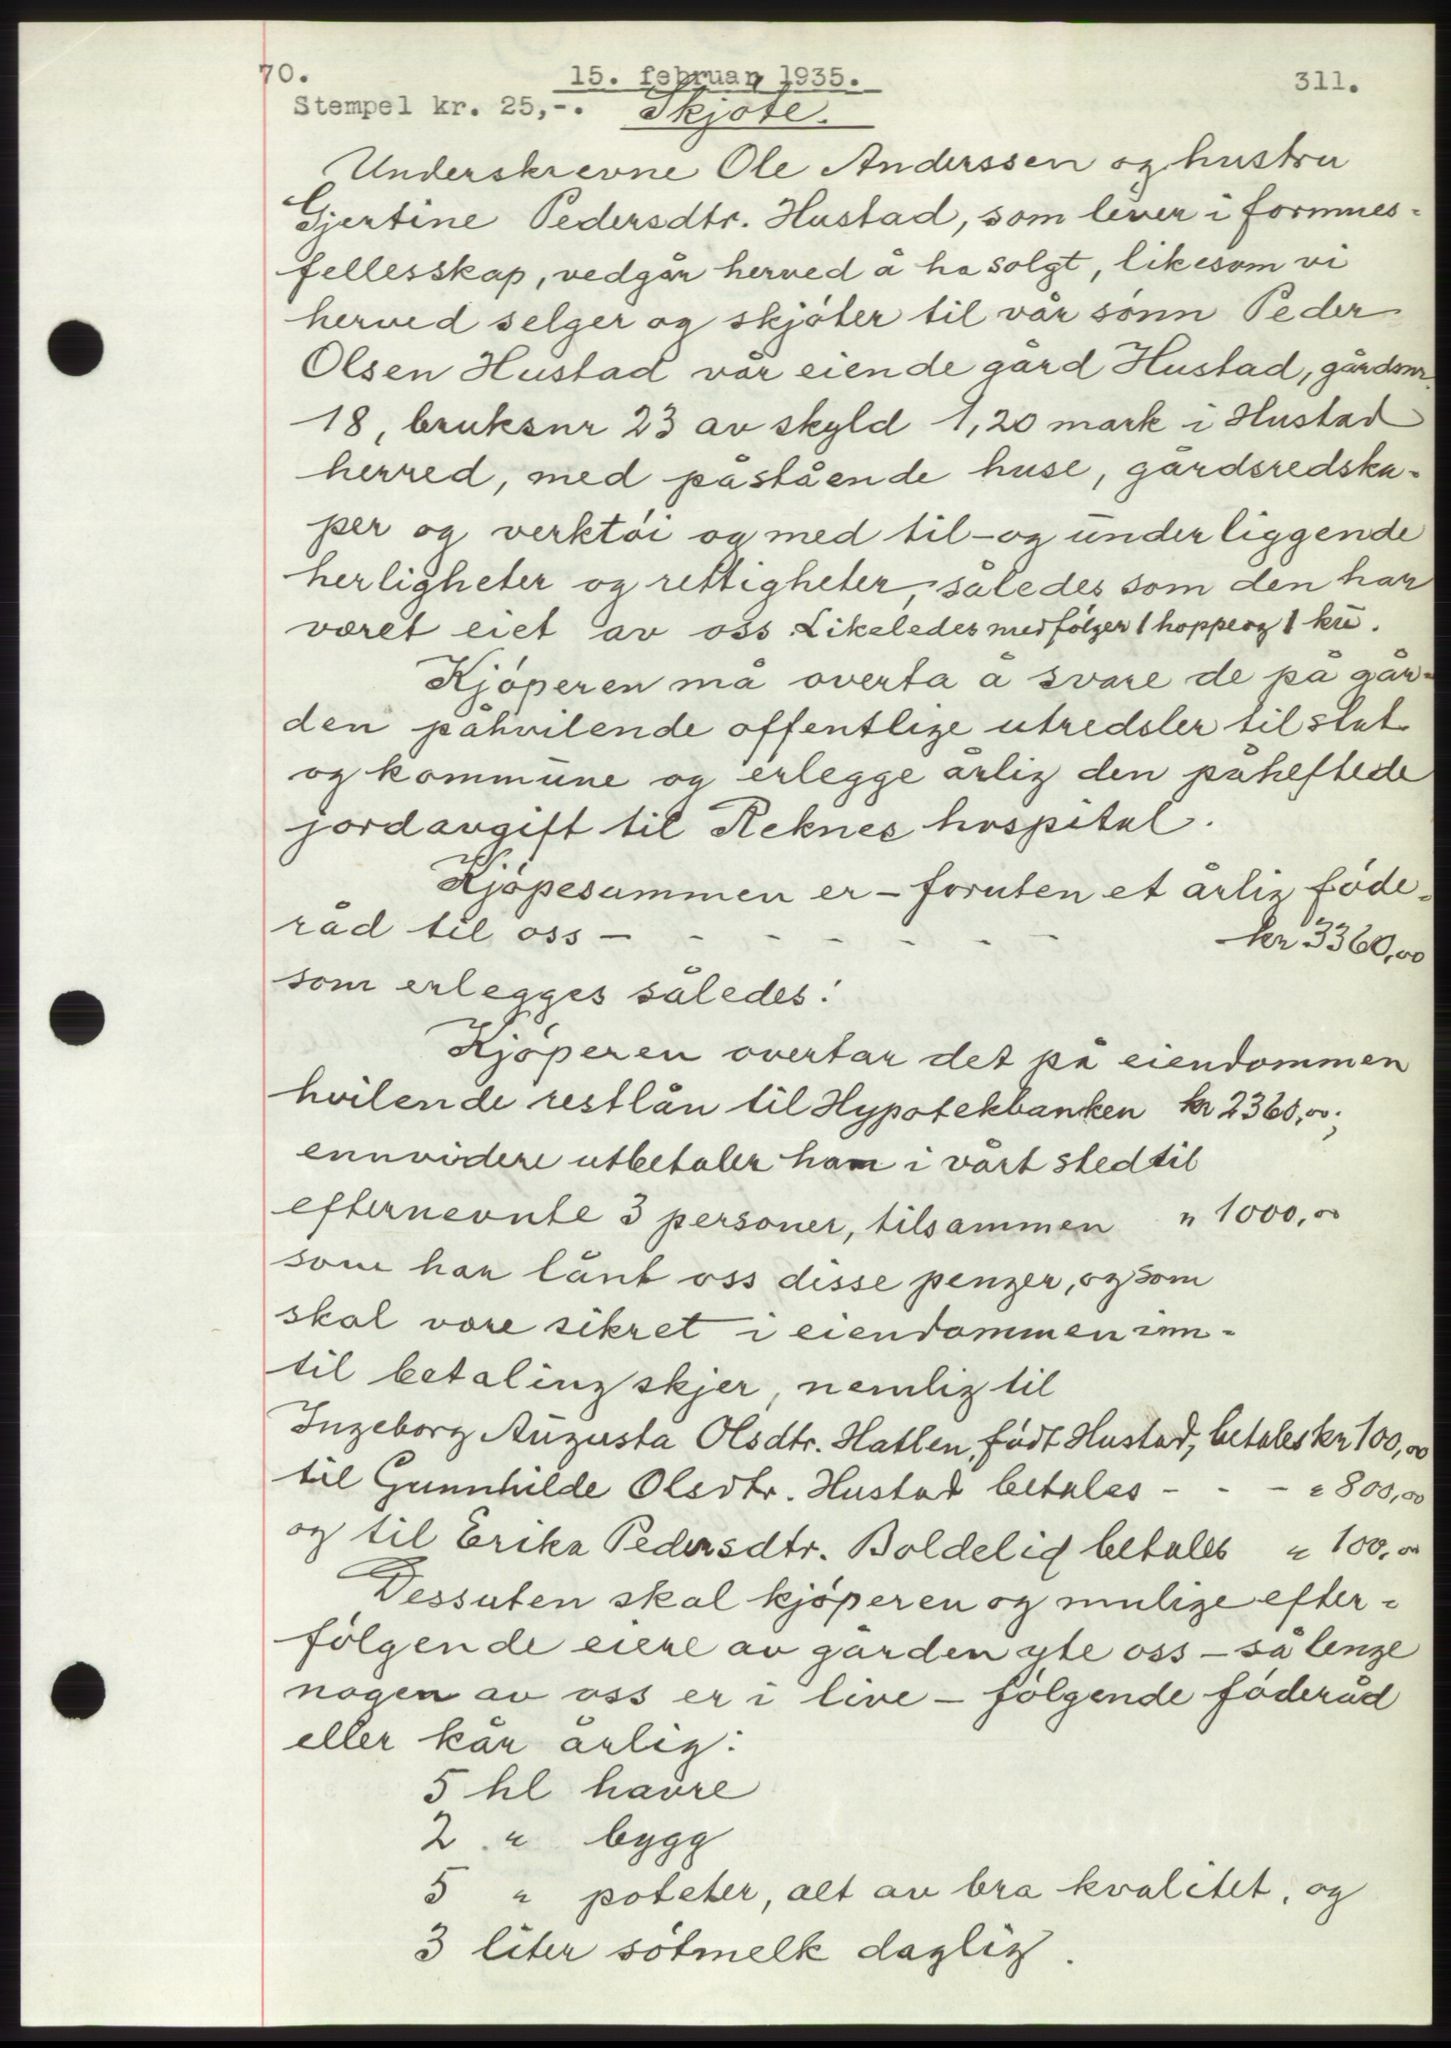 70. 15. februar 1935. 311.
Stempel kr. 25,-. Skjøte.
Underskrevne Ole Anderssen og hustru
Gjertine Pedersdtr. Hustad, som lever i formues-
fellesskap, vedgår herved å ha solgt, likesom vi
herved selger og skjøter til vår sønn Peder
Olsen Hustad vår eiende gård Hustad, gårdsnr.
18, bruksnr 23 av skyld 1,20 mark i Hustad
herred, med påstående huse, gårdsredska-
per og verktøi og med til- og underliggende
herligheter og rettigheter, således som den har
været eiet av oss. Likeledes medfølger 1 hoppe og 1 ku.
Kjøperen må overta å svare de på går-
den påhvilende offentlige utredsler til stat
og kommune og erlegge årlig den påheftede
jordavgift til Reknes hospital.
Kjøpesummen er - foruten et årlig føde-
råd til oss - - - - - - - kr 3360,00
som erlegges således:
Kjøperen overtar det på eiendommen
hvilende restlån til Hypotekbanken kr 2360,00;
ennvidere utbetaler han i vårt sted til
efternevnte 3 personer, tilsammen " 1000,00
som har lånt oss disse penger, og som
skal være sikret i eiendommen inn-
til betaling skjer, nemlig til
Ingeborg Augusta Olsdtr. Hatlen, født Hustad, betales kr 100,00
til Gunnhilde Olsdtr. Hustad betales - - - " 800,00
og til Erika Pedersdtr. Boldelid betales " 100,00
Dessuten skal kjøperen og mulige efter-
følgende eiere av gården yte oss - så lenge
nogen av oss er i live - følgende føderåd
eller kår årlig:
5 hl havre
2 " bygg
5 " poteter, alt av bra kvalitet, og
3 liter søtmelk daglig.